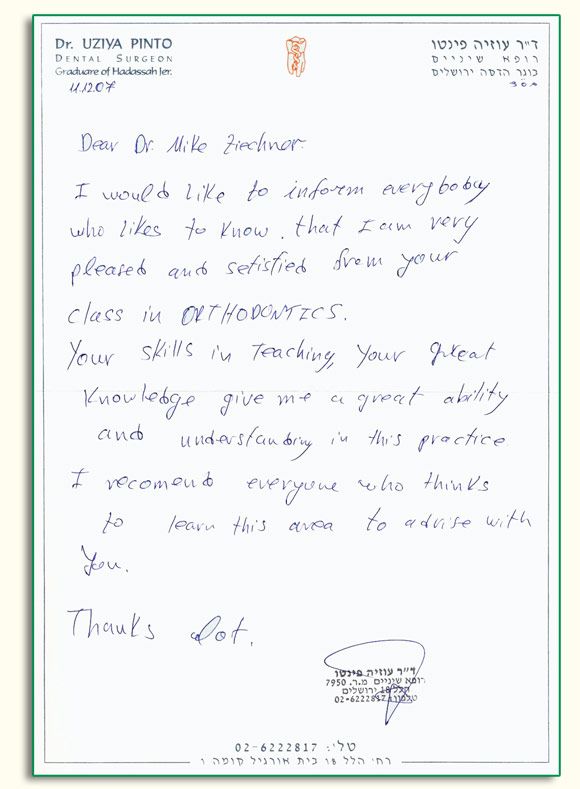 Dr. UZIYA PINTO
DENTAL SURGEON
Graduare of Hadassah Jer.
ד"ר עוזיה פינטו
רופא שיניים
בוגר הדסה ירושלים
11.12.07
Dear Dr. Mike Ziechner.
I would like to inform everybody
who likes to know. that I am very
pleased and setisfied from your
class in ORTHODONTICS.
Your skills in teaching, your great
knowledge give me a great ability
and understanding in this practice
I recomend everyone who thinks
to learn this area to advise with
you.
Thanks alot.
ד"ר עוזיה פינטו
רופא שיניים מ.ר. 7950
הלל 18 ירושלים
טלפון: 02-6222817
טל': 02-6222817
רח' הלל 18 בית אורגיל קומה 1